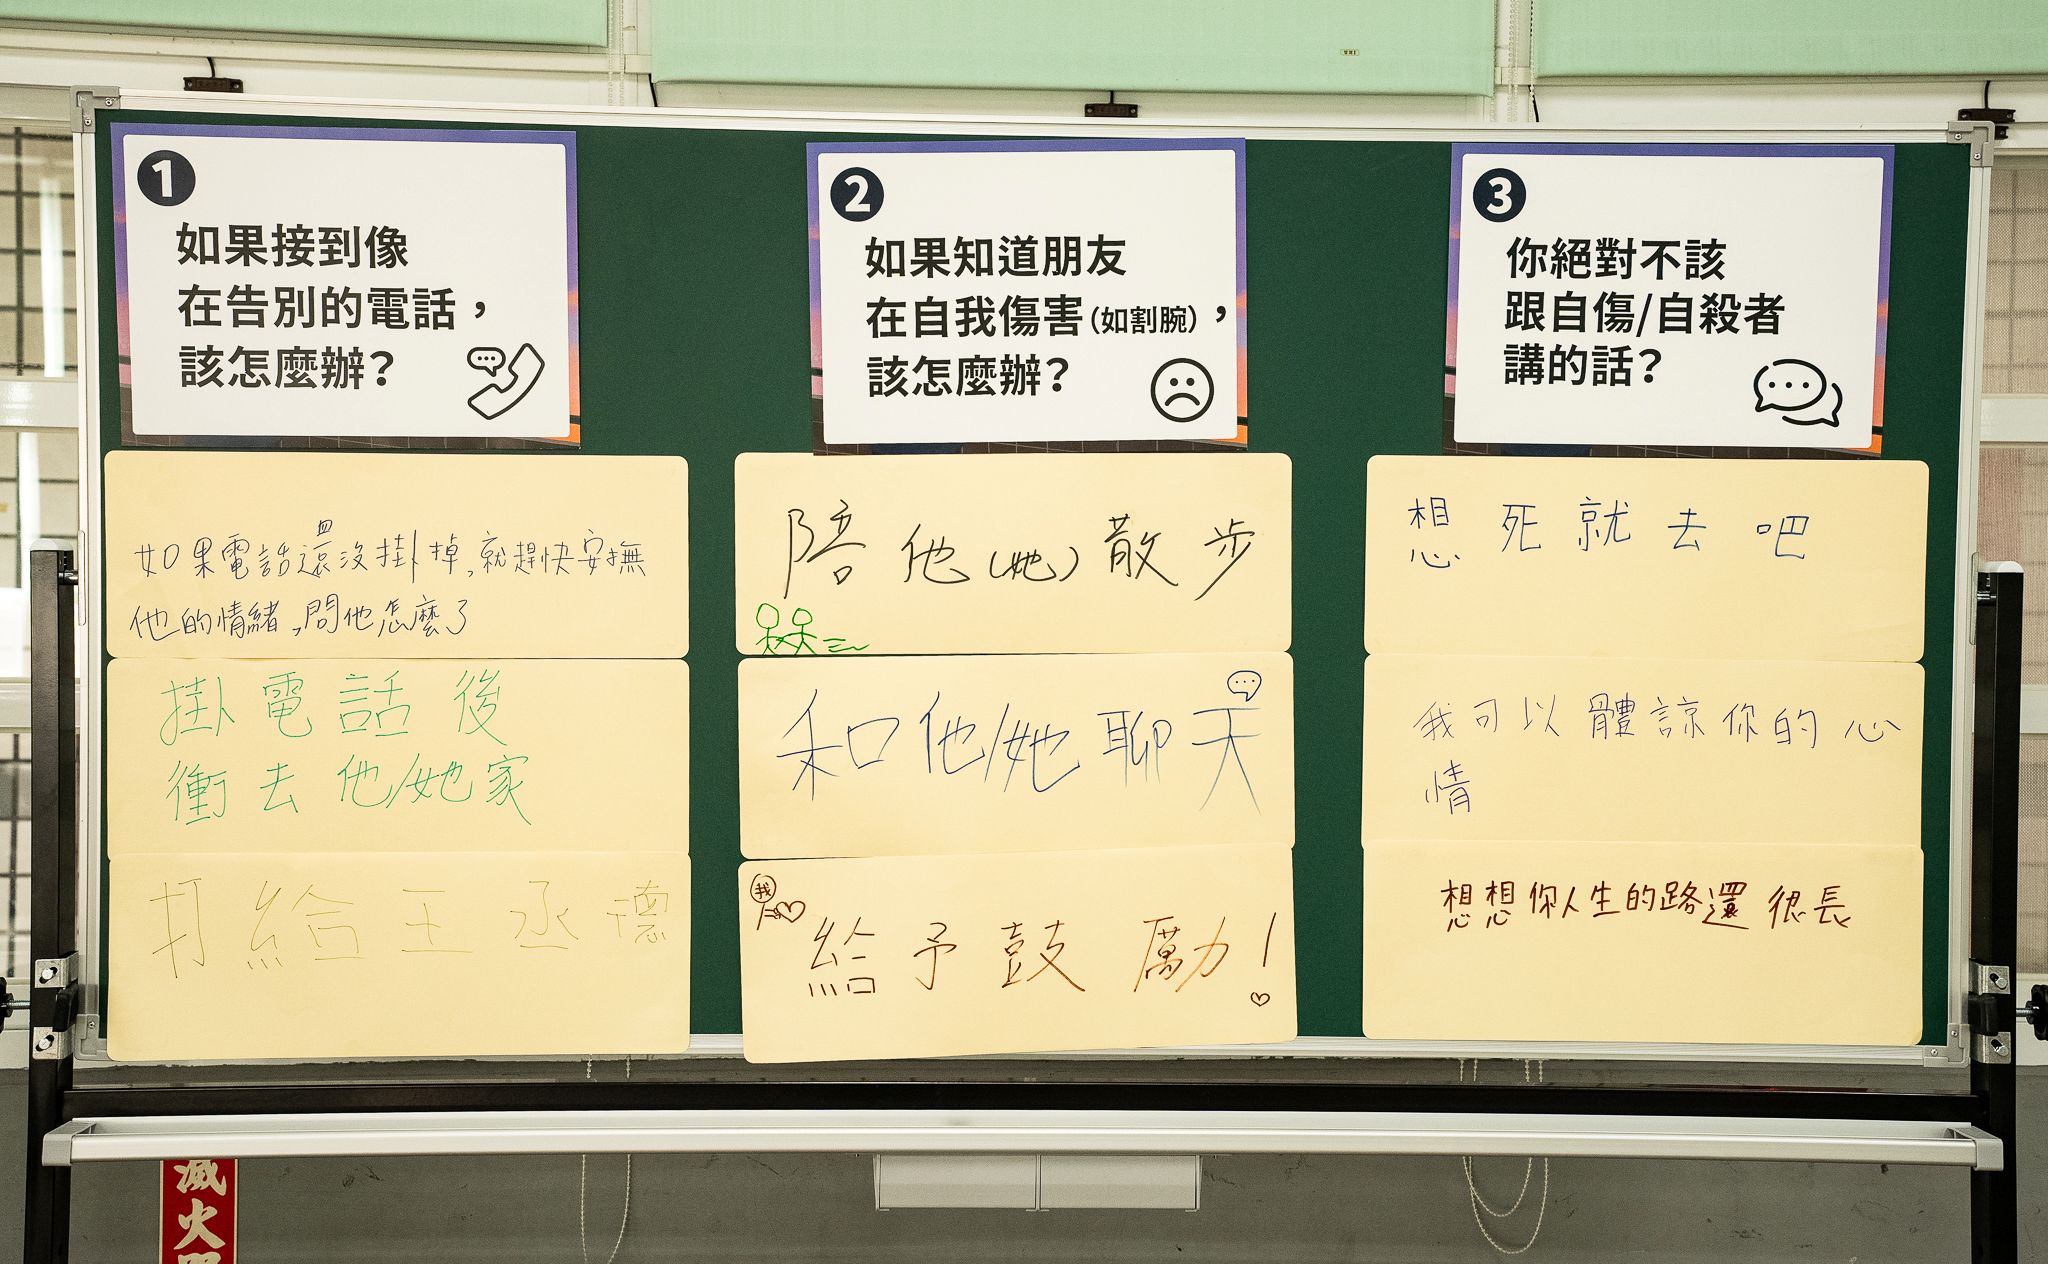 1
如果接到像
在告別的電話，
該怎麼辦？
如果電話還沒掛掉,就趕快安撫
他的情緒,問他怎麼了
掛電話後
衝去他/她家
打給王丞德
2
如果知道朋友
在自我傷害(如割腕)，
該怎麼辦？
陪他(她)散步
和他/她聊天
我
給予鼓厲力!
3
你絕對不該
跟自傷/自殺者
講的話？
想死就去吧
我可以體諒你的心
情
想想你人生的路還很長
滅火